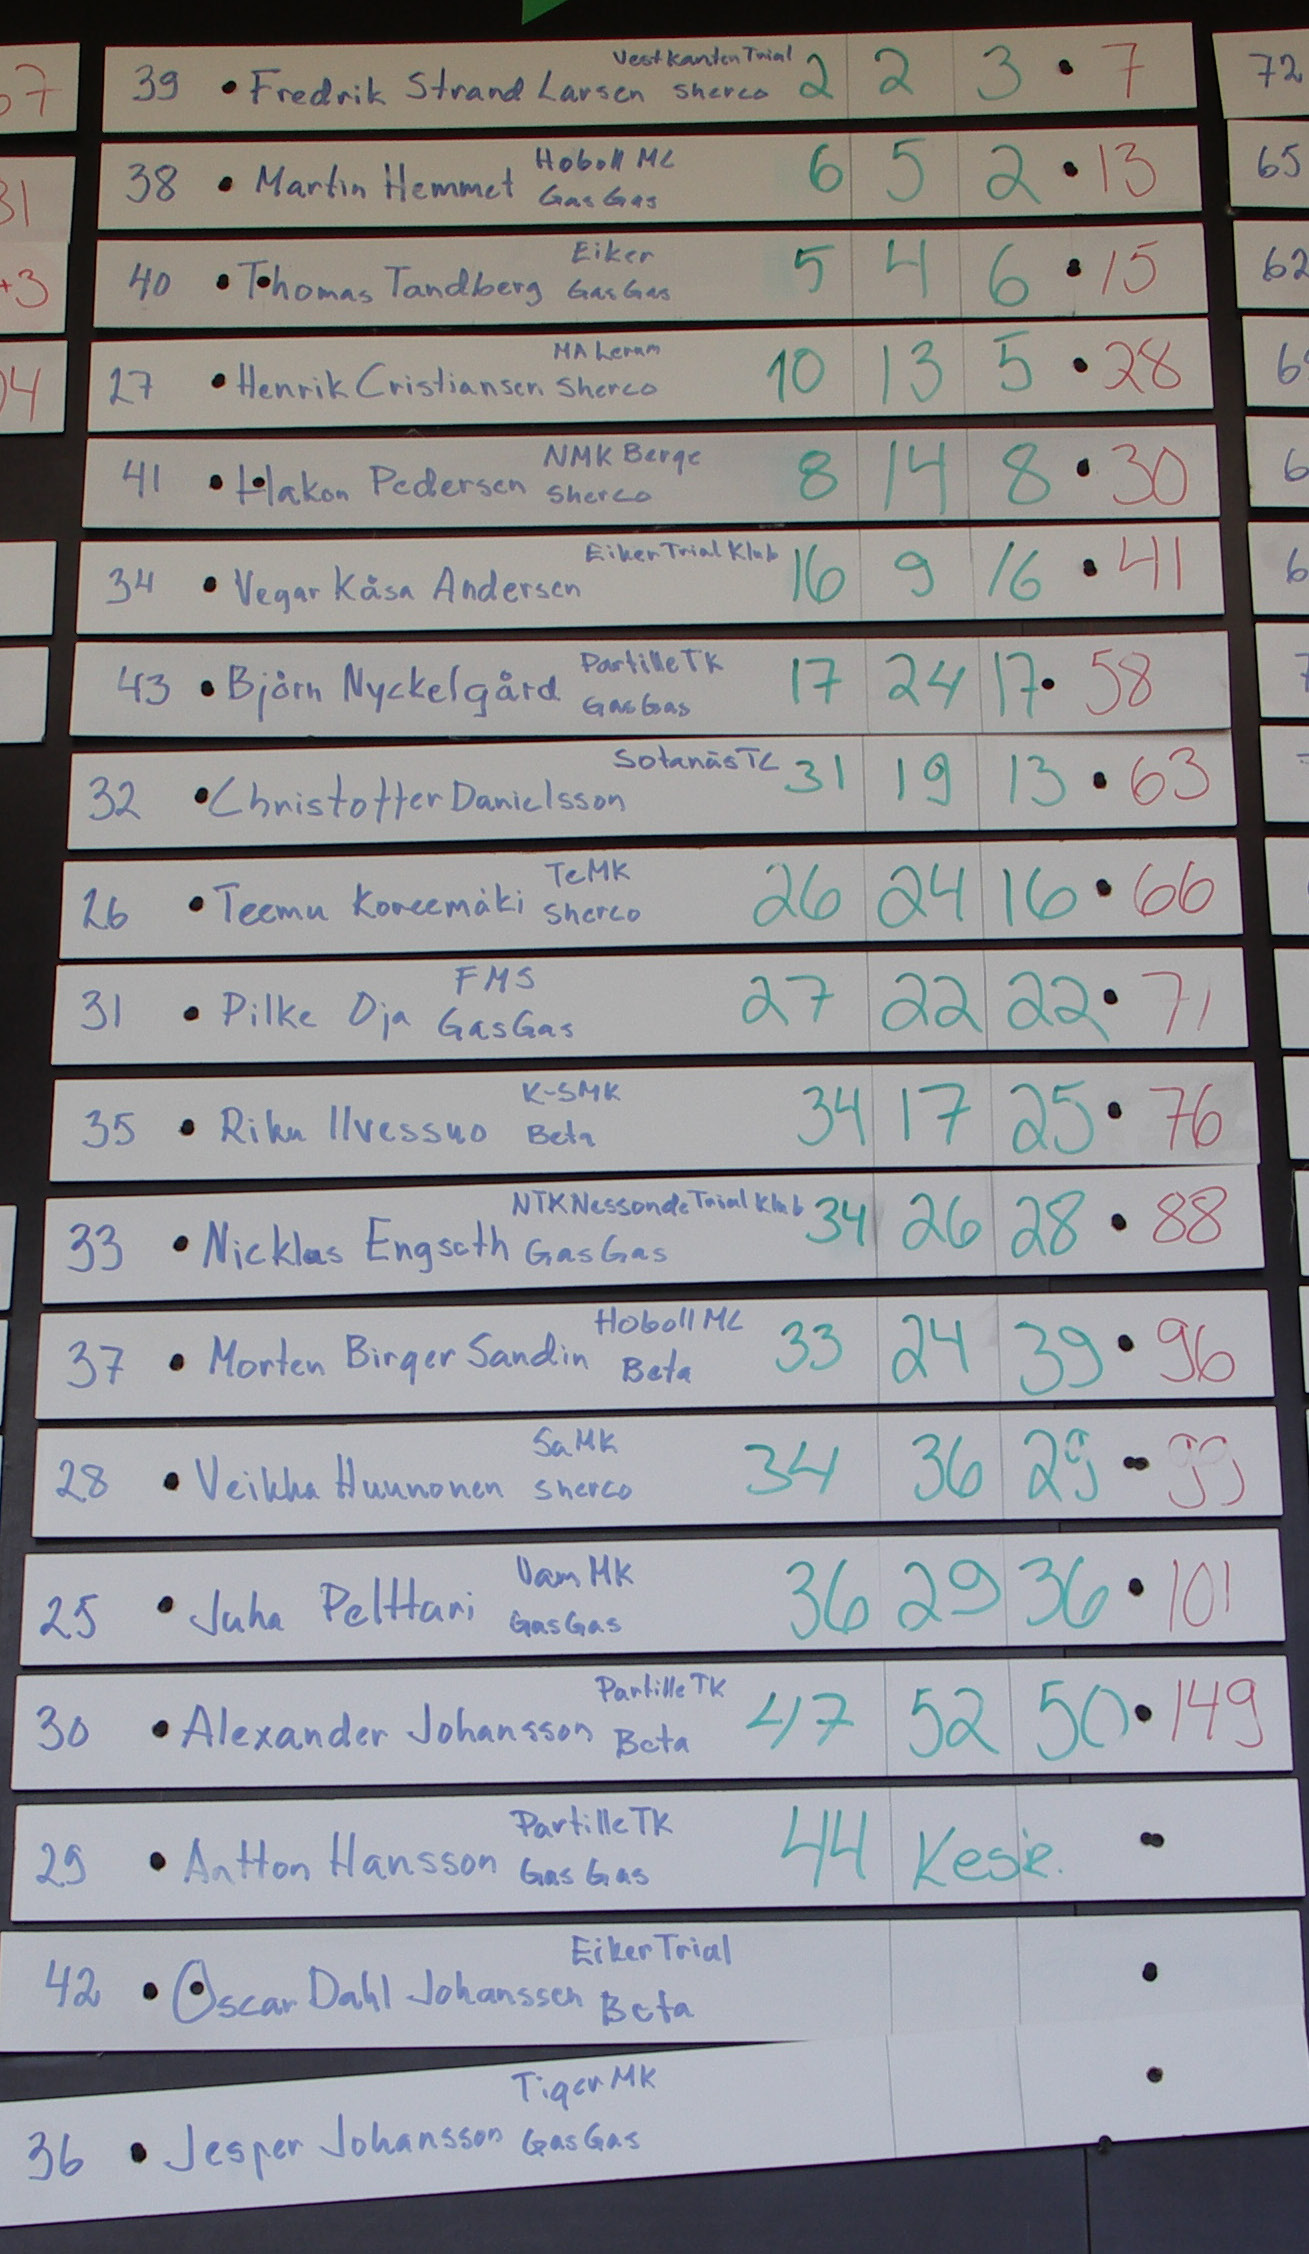 Vestkanten Trial
39 • Fredrik Strand Larsen Sherco 2 2 3 • 7
Hoboll MC
38 • Martin Hemmet GasGas 6 5 2 • 13
Eiker
40 • Thomas Tandberg GasGas 5 4 6 • 15
MA Lerum
27 • Henrik Cristiansen Sherco 10 13 5 • 28
NMK Berge
41 • Håkon Pedersen Sherco 8 14 8 • 30
Eiker Trial Klub
34 • Vegar Kåsa Andersen 16 9 16 • 41
Partille TK
43 • Björn Nyckelgård GasGas 17 24 17 • 58
Sotanäs TC
32 • Christoffer Danielsson 31 19 13 • 63
TeMK
26 • Teemu Koreemäki Sherco 26 24 16 • 66
FMS
31 • Pilke Oja GasGas 27 22 22 • 71
K-SMK
35 • Riku Ilvessuo Beta 34 17 25 • 76
NTK Nessonde Trial Klub
33 • Nicklas Engseth GasGas 34 26 28 • 88
Hoboll MC
37 • Morten Birger Sandin Beta 33 24 39 • 96
SaMK
28 • Veikka Huunonen Sherco 34 36 29 • 99
VamMK
25 • Juha Pelttari GasGas 36 29 36 • 101
Partille TK
30 • Alexander Johansson Beta 47 52 50 • 149
Partille TK
29 • Antton Hansson Gas Gas 44 Kesk.
Eiker Trial
42 • Oscar Dahl Johanssen Beta
Tiger MK
36 • Jesper Johansson GasGas
72
65
62